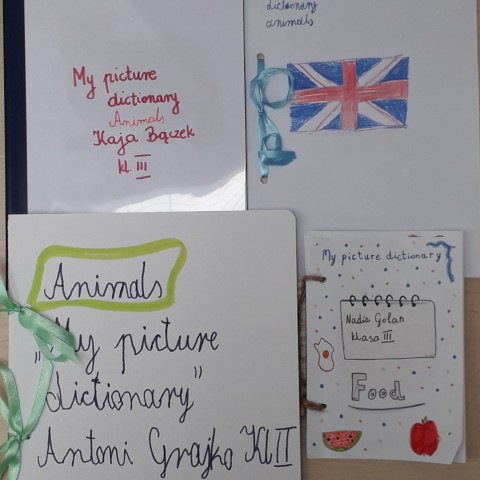 My picture
dictionary
Animals
Kaja Bączek
kl. III
dictionary
animals
Animals
"My picture
dictionary"
Antoni Grajko Kl II
My picture dictionary
Nadia Golan
klasa III
Food